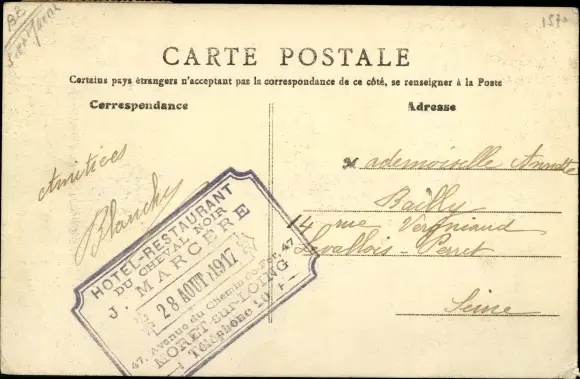 CARTE POSTALE
Certains pays étrangers n'acceptant pas la correspondance de ce côté, se renseigner à la Poste
Correspondance
Adresse
Amitiées
Blanche
Mademoiselle Annette
Bailly
14 rue Vergniaud
Levallois-Perret
Seine
HOTEL-RESTAURANT
DU CHEVAL NOIR
J. MARCERE
28 AOUT 1917
47, Avenue du Chemin de Fer, 47
MORET-sur-LOING
Téléphone 10